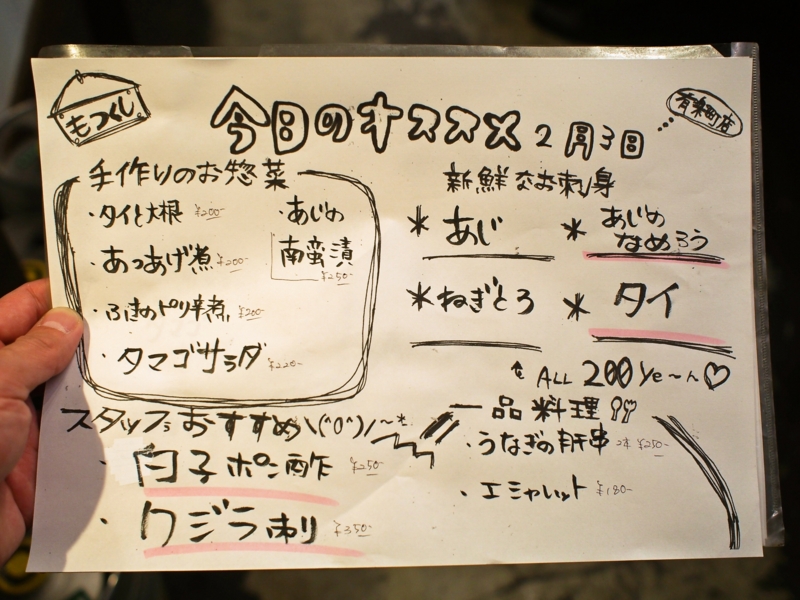 もつくし
今日のオススメ 2月3日
有楽町店
手作りのお惣菜
・タイと大根 ¥200-
・あつあげ煮 ¥200-
・ふきのピリ辛煮 ¥200-
・タマゴサラダ ¥220-
・あじの
南蛮漬
¥250-
新鮮なお刺身
* あじ
* あじの
なめろう
* ねぎとろ
* タイ
ALL 200 Ye〜ん♡
スタッフおすすめ\(^0^)/〜*
・白子ポン酢 ¥250-
・クジラ刺り ¥350-
一品料理
・うなぎの肝串 2本 ¥250-
・エシャレット ¥180-